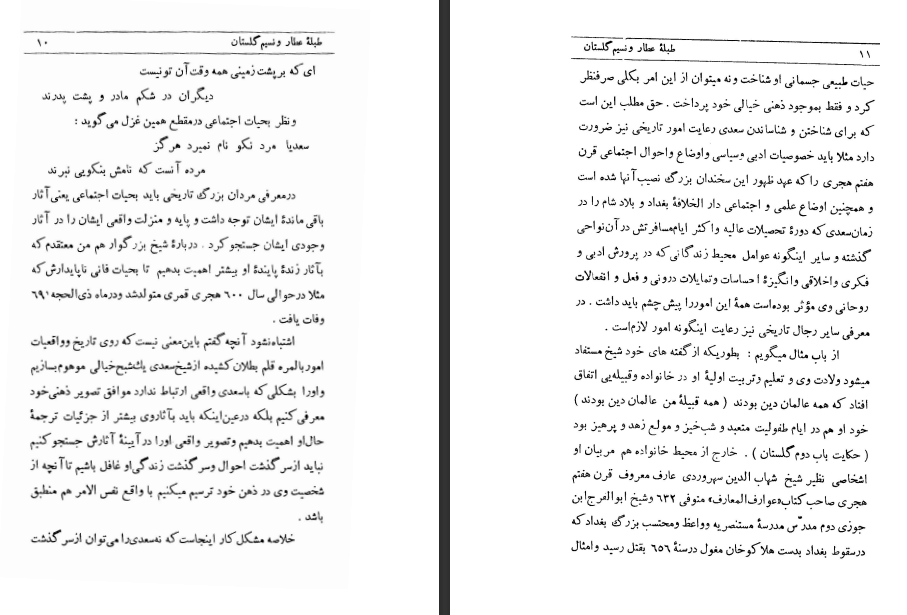 طبلهٔ عطار و نسیم گلستان ۱۰
ای که بر پشت زمینی همه وقت آن تونیست
دیگران در شکم مادر و پشت پدرند
ونظر بحیات اجتماعی درمقطع همین غزل می‌گوید :
سعدیا مرد نکو نام نمیرد هرگز
مرده آنست که نامش بنکویی نبرند
درمعرفی مردان بزرگ تاریخی باید بحیات اجتماعی یعنی آثار
باقی ماندهٔ ایشان توجه داشت و پایه و منزلت واقعی ایشان را در آثار
وجودی ایشان جستجو کرد . دربارهٔ شیخ بزرگوار هم من معتقدم که
بآثار زندهٔ پایندهٔ او بیشتر اهمیت بدهیم تا بحیات فانی ناپایدارش که
مثلا درحوالی سال ۶۰۰ هجری قمری متولدشد ودرماه ذی‌الحجه ۶۹۱
وفات یافت .
اشتباه‌نشود آنچه گفتم باین‌معنی نیست که روی تاریخ وواقعیات
امور بالمره قلم بطلان کشیده ازشیخ سعدی یك‌شبح خیالی موهوم بسازیم
واورا بشکلی که باسعدی واقعی ارتباط ندارد موافق تصویر ذهنی‌خود
معرفی کنیم بلکه درعین‌اینکه باید بآثاروی بیشتر از جزئیات ترجمهٔ
حال‌او اهمیت بدهیم وتصویر واقعی اورا درآیینهٔ آثارش جستجو کنیم
نباید ازسرگذشت احوال وسرگذشت زندگی‌او غافل باشیم تا آنچه از
شخصیت وی در ذهن خود ترسیم میکنیم با واقع نفس الامر هم منطبق
باشد .
خلاصه مشکل کار اینجاست که نه‌سعدی را می‌توان ازسرگذشت
طبلهٔ عطار و نسیم گلستان ۱۱
حیات طبیعی جسمانی او شناخت ونه میتوان از این امر بکلی صرفنظر
کرد و فقط بموجود ذهنی خیالی خود پرداخت . حق مطلب این است
که برای شناختن و شناساندن سعدی رعایت امور تاریخی نیز ضرورت
دارد مثلا باید خصوصیات ادبی وسیاسی واوضاع واحوال اجتماعی قرن
هفتم هجری را که عهد ظهور این سخندان بزرگ نصیب آنها شده است
و همچنین اوضاع علمی و اجتماعی دار الخلافهٔ بغداد و بلاد شام را در
زمان‌سعدی که دورهٔ تحصیلات عالیه واکثر ایام‌مسافرتش در آن‌نواحی
گذشته و سایر اینگونه عوامل محیط زندگانی که در پرورش ادبی و
فکری واخلاقی وانگیزهٔ احساسات وتمایلات درونی و فعل و انفعالات
روحانی وی مؤثر بوده‌است همهٔ این اموررا پیش چشم باید داشت . در
معرفی سایر رجال تاریخی نیز رعایت اینگونه امور لازم‌است .
از باب مثال میگویم : بطوریکه از گفته های خود شیخ مستفاد
میشود ولادت وی و تعلیم وتربیت اولیهٔ او در خانواده وقبیله‌یی اتفاق
افتاد که همه عالمان دین بودند ( همه قبیلهٔ من عالمان دین بودند )
خود او هم در ایام طفولیت متعبد و شب‌خیز و مولع زهد و پرهیز بود
( حکایت باب دوم گلستان ) . خارج از محیط خانواده هم مربیان او
اشخاصی نظیر شیخ شهاب الدین سهروردی عارف معروف قرن هفتم
هجری صاحب کتاب«عوارف‌المعارف» متوفی ۶۳۲ وشیخ ابوالفرج‌ابن
جوزی دوم مدرّس مدرسهٔ مستنصریه وواعظ ومحتسب بزرگ بغداد که
درسقوط بغداد بدست هلاکوخان مغول درسنهٔ ۶۵۶ بقتل رسید وامثال